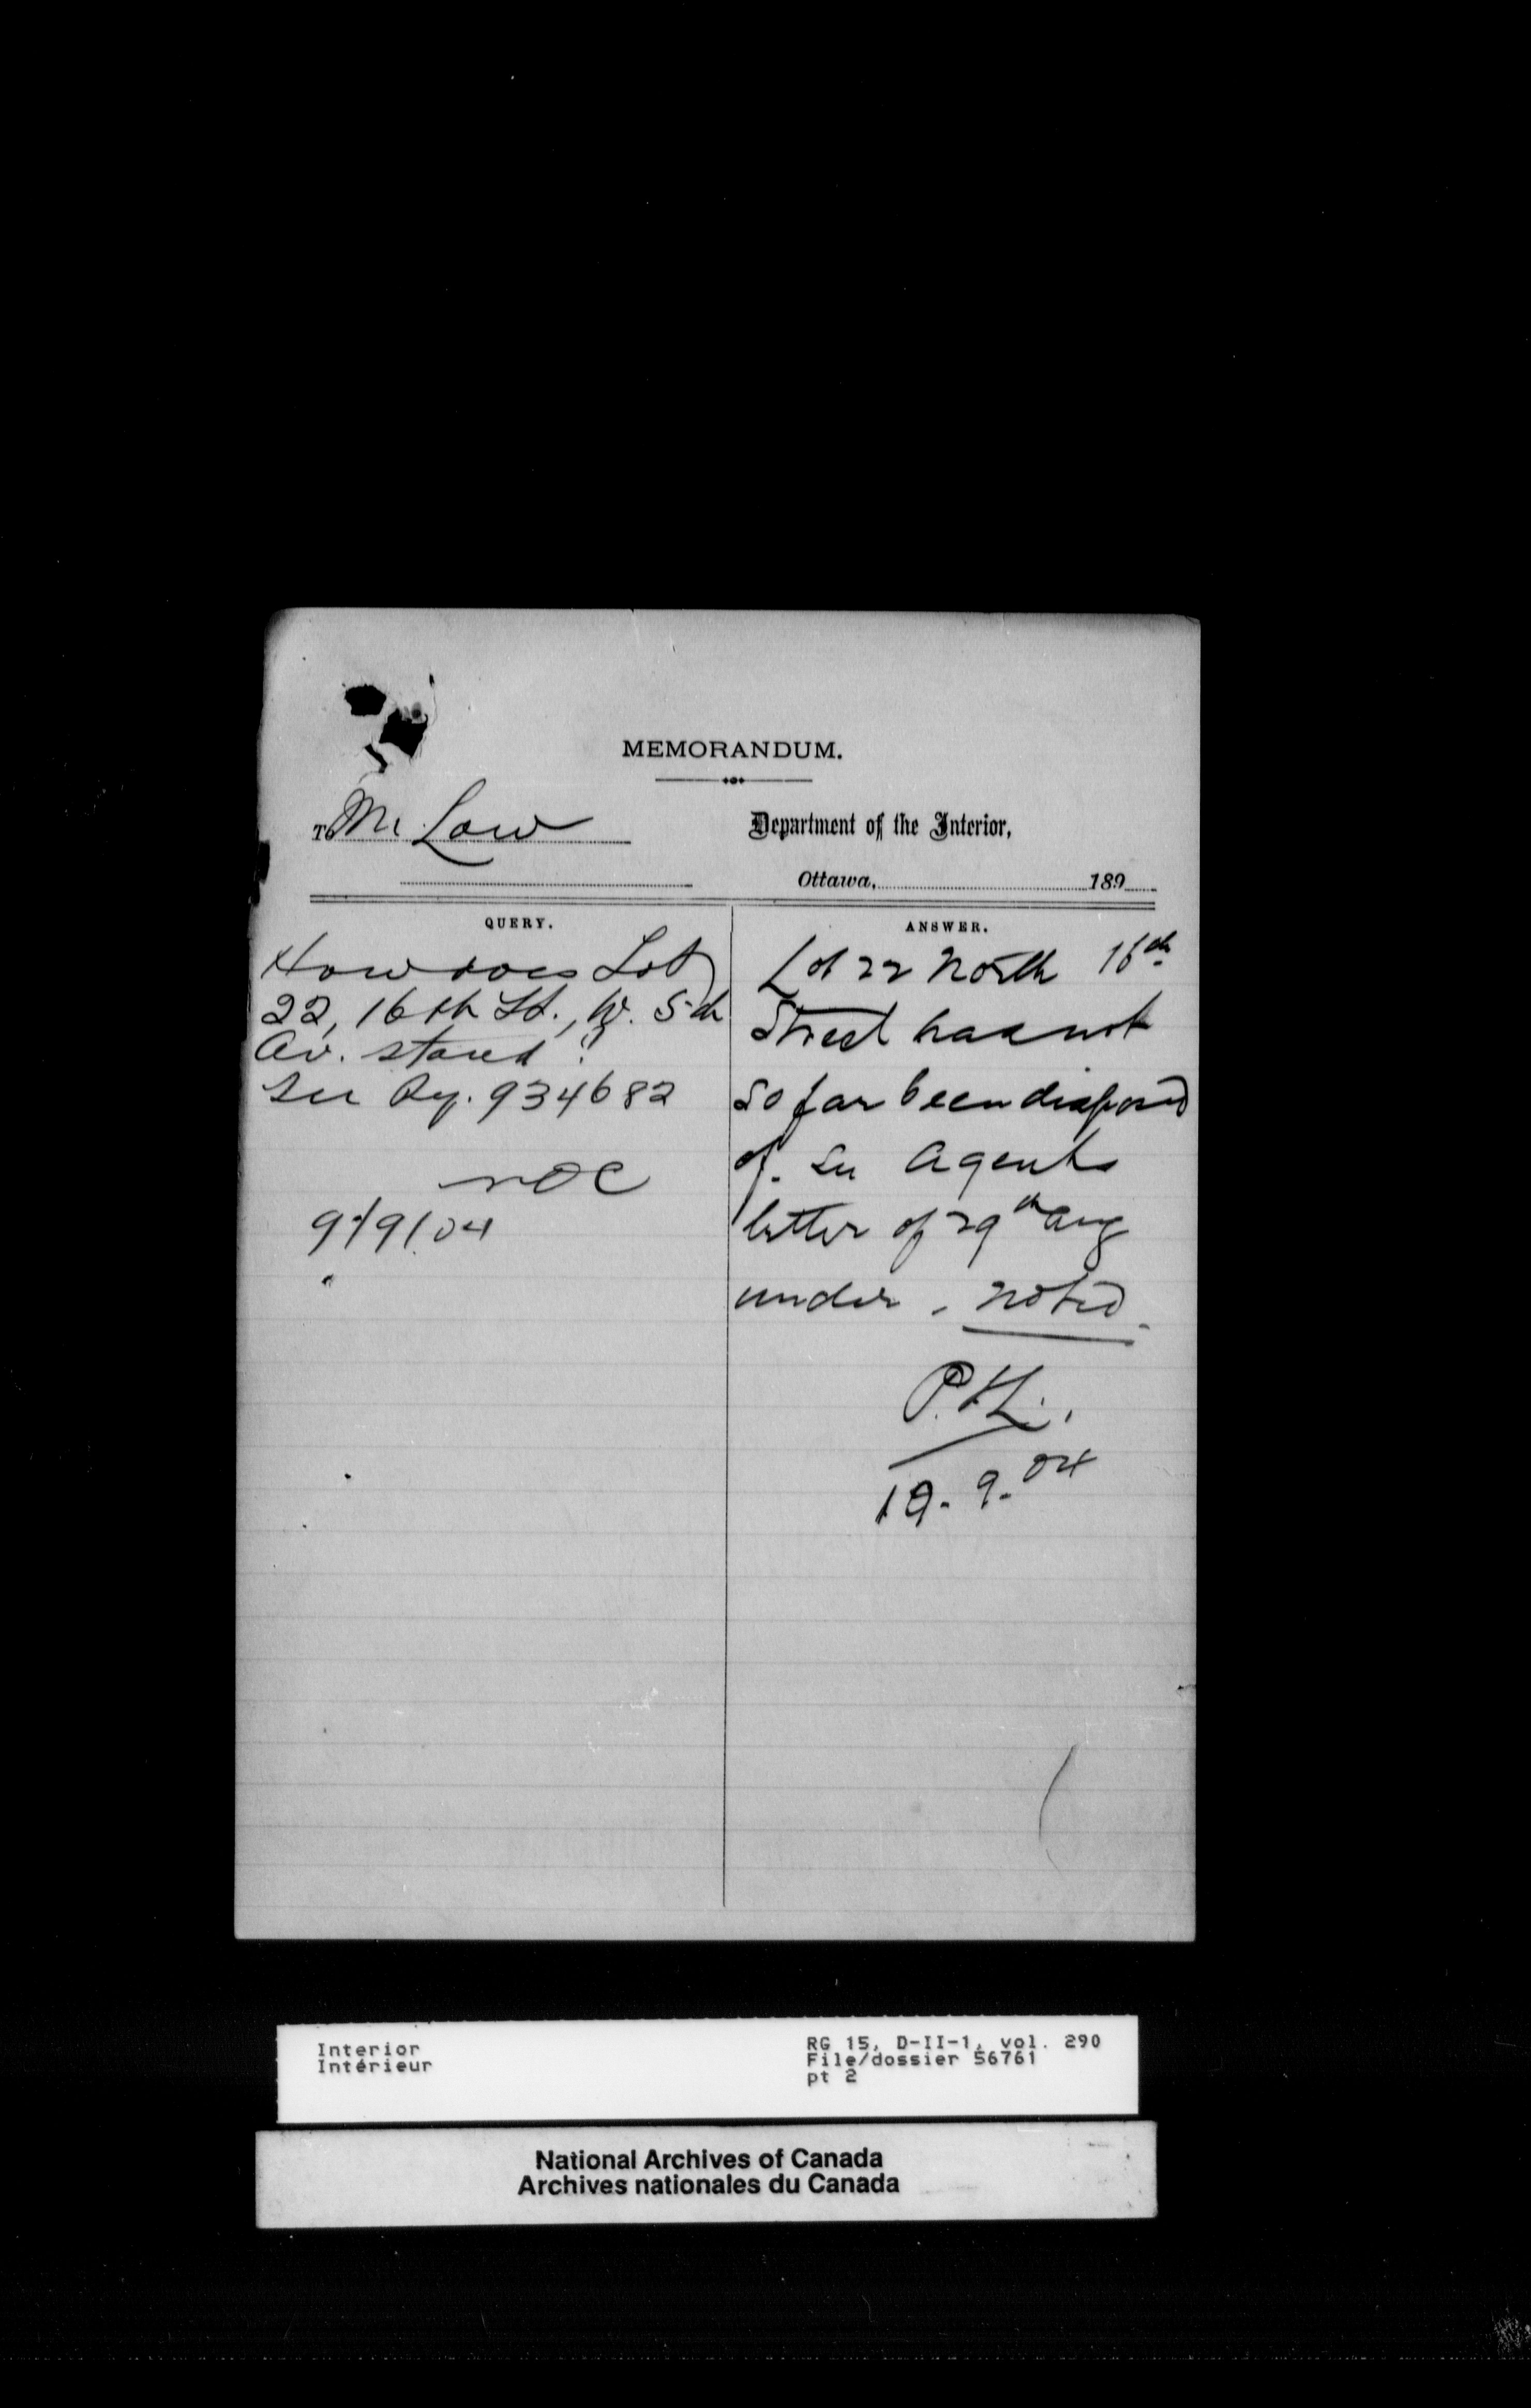 MEMORANDUM.
To Mr Low
Department of the Interior,
Ottawa, 189
QUERY.
How does Lot
22, 16th St., W. 5th
Av. stand?
See Ry. 934682
9/9/04
ANSWER.
Lot 22 North 16th
Street has not
so far been disposed
of. See Agents
letter of 29th Aug
under. noted.
P.H.L.
19.9.04
Interior
Intérieur
RG 15, D-II-1, vol. 290
File/dossier 56761
pt 2
National Archives of Canada
Archives nationales du Canada